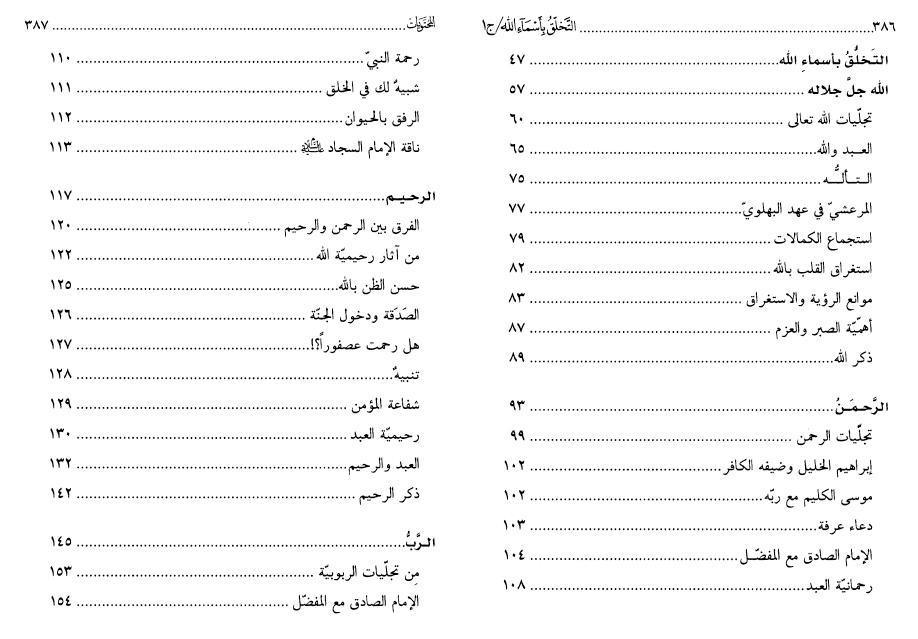 ٣٨٦ ........ التَّخَلُّقُ بِأَسْمَآءِ الله/ج١
التَخلُّقُ بأسماءِ الله ........ ٤٧
الله جلَّ جلاله ........ ٥٧
تجلّيات الله تعالى ........ ٦٠
العـبد والله ........ ٦٥
التـألُّـه ........ ٧٥
المرعشيّ في عهد البهلويّ ........ ٧٧
استجماع الكمالات ........ ٧٩
استغراق القلب بالله ........ ٨٢
موانع الرؤية والاستغراق ........ ٨٣
أهمّيّة الصبر والعزم ........ ٨٧
ذكر الله ........ ٨٩
الرَّحـمَـنُ ........ ٩٣
تجلّيات الرحمن ........ ٩٩
إبراهيم الخليل وضيفه الكافر ........ ١٠٢
موسى الكليم مع ربّه ........ ١٠٢
دعاء عرفة ........ ١٠٣
الإمام الصادق مع المفضّـل ........ ١٠٤
رحمانيّة العبد ........ ١٠٨
المحتويات ........ ٣٨٧
رحمة النبيّ ........ ١١٠
شبيهٌ لك في الخلق ........ ١١١
الرفق بالحيوان ........ ١١٢
ناقة الإمام السجاد ........ ١١٣
الرحيـم ........ ١١٧
الفرق بين الرحمن والرحيم ........ ١٢٠
من آثار رحيميّة الله ........ ١٢٢
حسن الظن بالله ........ ١٢٥
الصَدَقة ودخول الجنّة ........ ١٢٦
هل رحمت عصفوراً؟! ........ ١٢٧
تنبيهٌ ........ ١٢٨
شفاعة المؤمن ........ ١٢٩
رحيميّة العبد ........ ١٣٠
العبد والرحيم ........ ١٣٢
ذكر الرحيم ........ ١٤٢
الـرَّبُّ ........ ١٤٥
مِن تجلّيات الربوبيّة ........ ١٥٣
الإمام الصادق مع المفضّل ........ ١٥٤